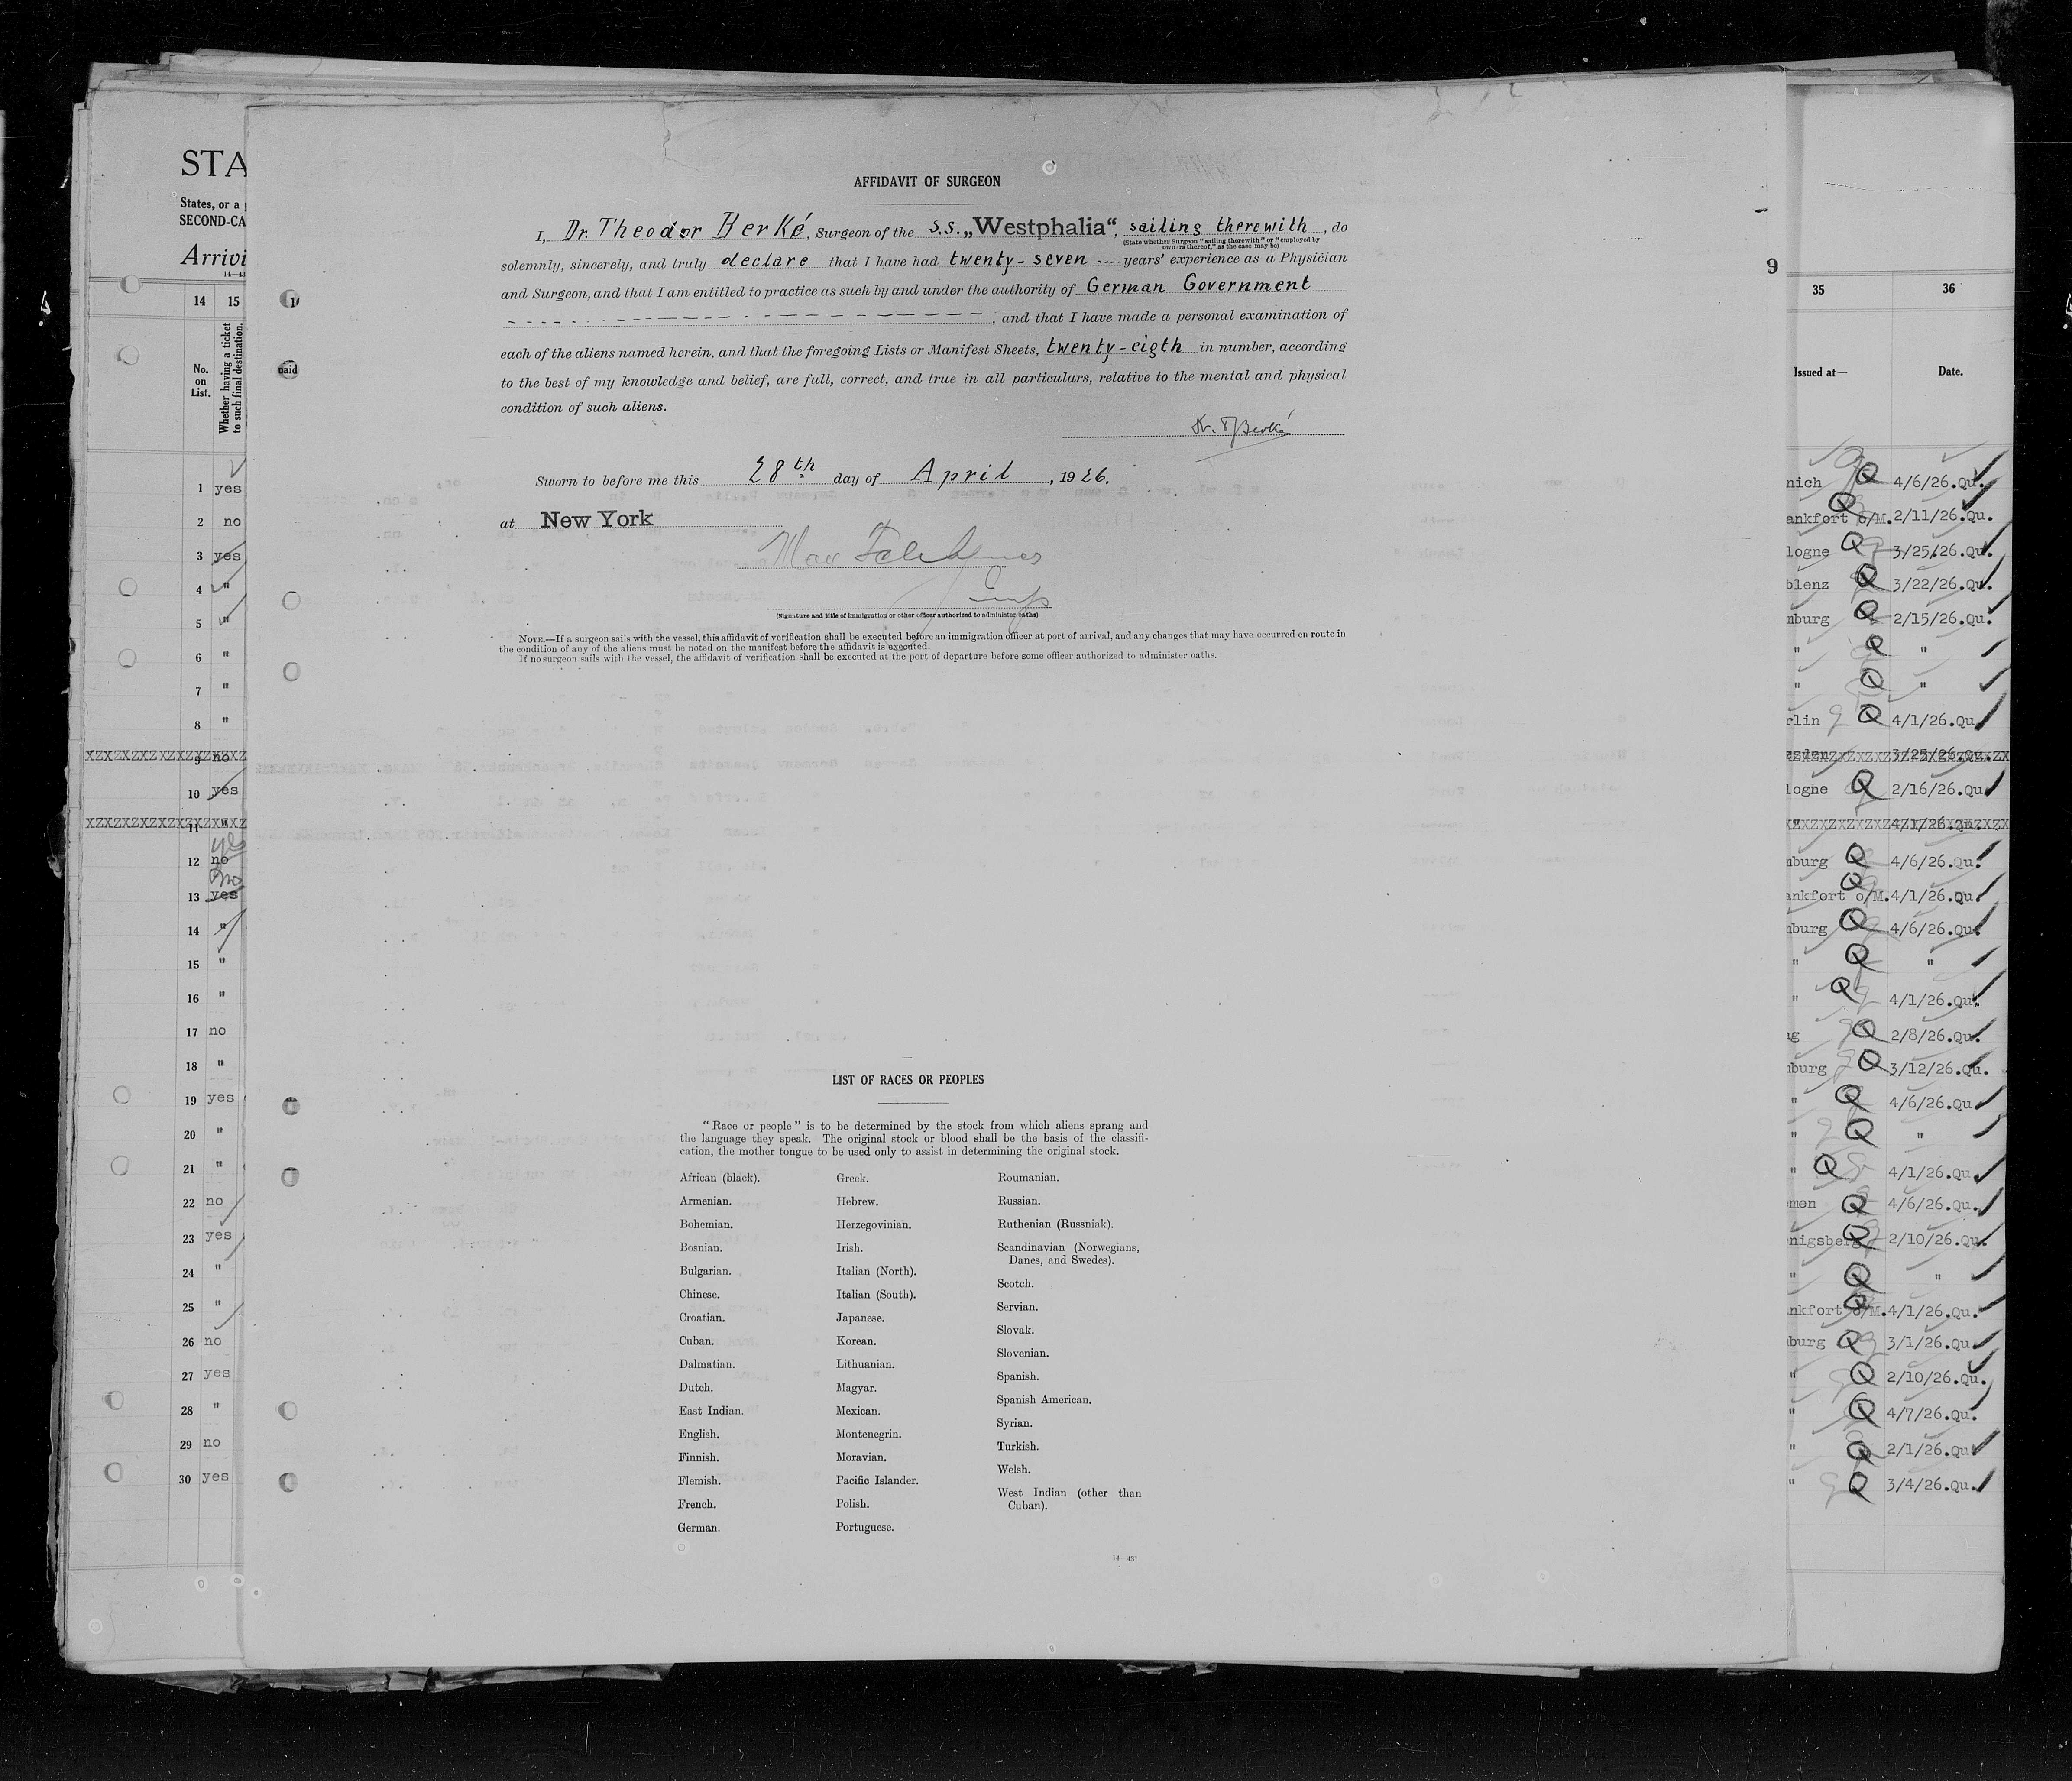 AFFIDAVIT OF SURGEON
I, Dr. Theodor Berké, Surgeon of the S.S. „Westphalia“, sailing therewith, do
(State whether Surgeon "sailing therewith" or "employed by
owners thereof," as the case may be)
solemnly, sincerely, and truly declare that I have had twenty-seven ---- years' experience as a Physician
and Surgeon, and that I am entitled to practice as such by and under the authority of German Government
, and that I have made a personal examination of
each of the aliens named herein, and that the foregoing Lists or Manifest Sheets, twenty-eigth in number, according
to the best of my knowledge and belief, are full, correct, and true in all particulars, relative to the mental and physical
condition of such aliens.
Dr. Th Berké
Sworn to before me this 28th day of April, 1926.
at New York
Max
Insp
(Signature and title of immigration or other officer authorized to administer oaths)
NOTE.—If a surgeon sails with the vessel, this affidavit of verification shall be executed before an immigration officer at port of arrival, and any changes that may have occurred en route in
the condition of any of the aliens must be noted on the manifest before the affidavit is executed.
If no surgeon sails with the vessel, the affidavit of verification shall be executed at the port of departure before some officer authorized to administer oaths.
9
LIST OF RACES OR PEOPLES
"Race or people" is to be determined by the stock from which aliens sprang and
the language they speak. The original stock or blood shall be the basis of the classifi-
cation, the mother tongue to be used only to assist in determining the original stock.
African (black).
Armenian.
Bohemian.
Bosnian.
Bulgarian.
Chinese.
Croatian.
Cuban.
Dalmatian.
Dutch.
East Indian.
English.
Finnish.
Flemish.
French.
German.
Greek.
Hebrew.
Herzegovinian.
Irish.
Italian (North).
Italian (South).
Japanese.
Korean.
Lithuanian.
Magyar.
Mexican.
Montenegrin.
Moravian.
Pacific Islander.
Polish.
Portuguese.
Roumanian.
Russian.
Ruthenian (Russniak).
Scandinavian (Norwegians,
Danes, and Swedes).
Scotch.
Servian.
Slovak.
Slovenian.
Spanish.
Spanish American.
Syrian.
Turkish.
Welsh.
West Indian (other than
Cuban).
14—431
STA
States, or a p
SECOND-CA
Arrivi
14—43
14 15
No.
on
List.
Whether having a ticket
to such final destination.
paid
1 yes
2 no
3 yes
4 "
5 "
6 "
7 "
8 "
9 no
10 yes
11 "
yes
12 no
no
13 yes
14 "
15 "
16 "
17 no
18 "
19 yes
20 "
21 "
22 no
23 yes
24 "
25 "
26 no
27 yes
28 "
29 no
30 yes
35 36
Issued at— Date.
nich Q 4/6/26.Qu.
ankfort o/M. Q 2/11/26.Qu.
logne Q 3/25/26.Qu.
blenz Q 3/22/26.Qu.
mburg Q 2/15/26.Qu.
" Q "
" Q "
rlin Q 4/1/26.Qu.
esden 3/25/26.Qu.
logne Q 2/16/26.Qu.
" 4/1/26.Qu.
mburg Q 4/6/26.Qu.
ankfort o/M. Q 4/1/26.Qu.
mburg Q 4/6/26.Qu.
" Q "
" Q 4/1/26.Qu.
ag Q 2/8/26.Qu.
mburg Q 3/12/26.Qu.
" Q 4/6/26.Qu
" Q "
" Q 4/1/26.Qu
emen Q 4/6/26.Qu.
nigsberg Q 2/10/26.Qu.
" Q "
nkfort o/M. Q 4/1/26.Qu.
burg Q 3/1/26.Qu.
" Q 2/10/26.Qu.
" Q 4/7/26.Qu.
" Q 2/1/26.Qu
" Q 3/4/26.Qu.